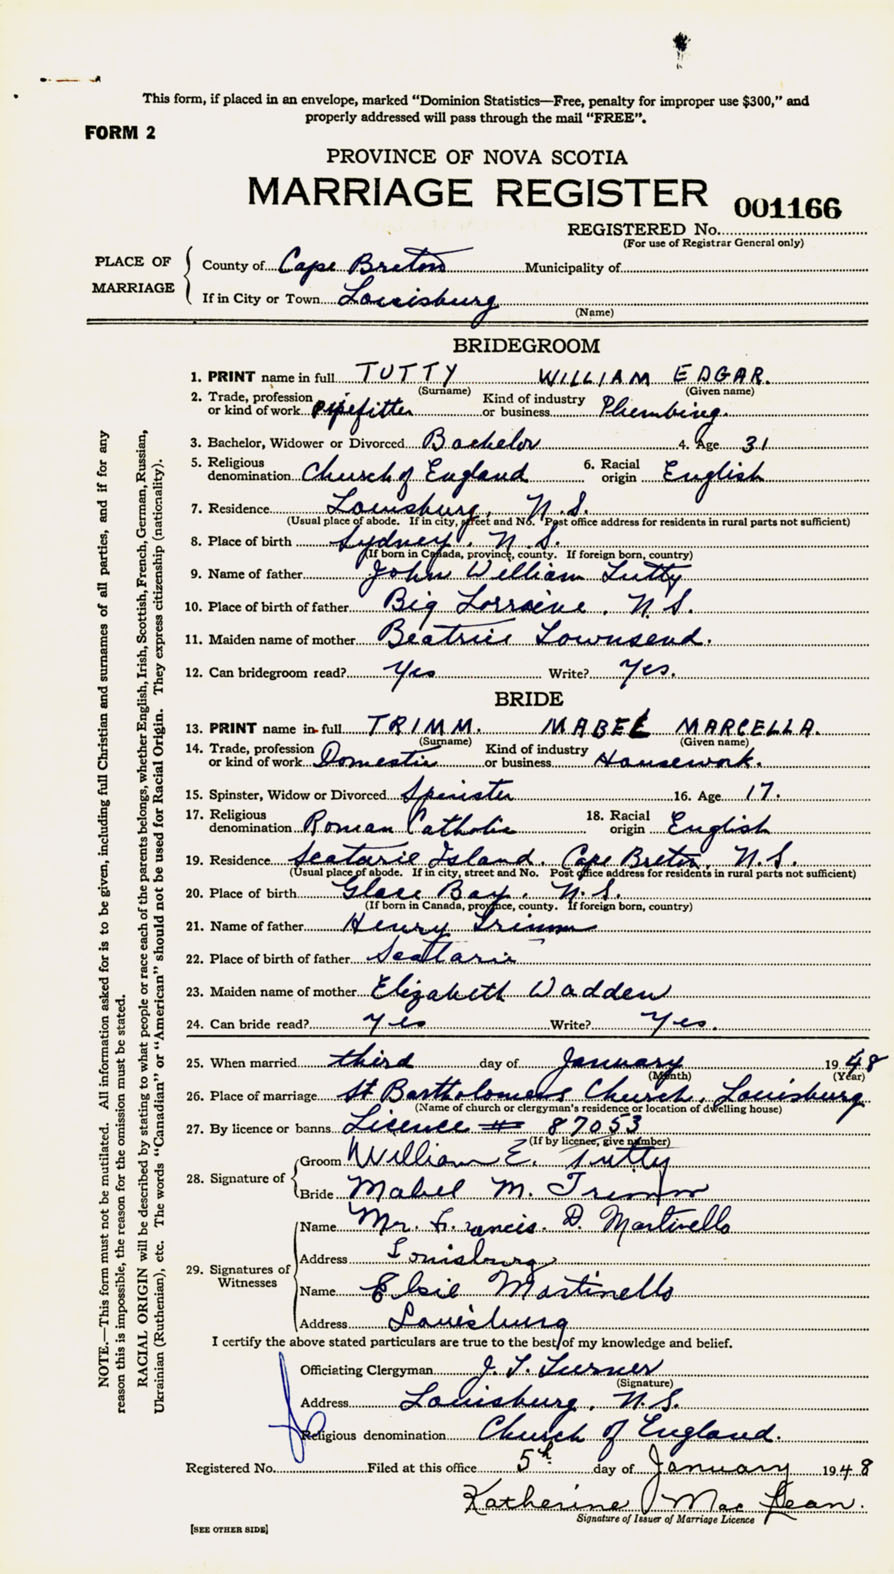 This form, if placed in an envelope, marked "Dominion Statistics—Free, penalty for improper use $300," and
properly addressed will pass through the mail "FREE".
FORM 2
PROVINCE OF NOVA SCOTIA
MARRIAGE REGISTER 001166
REGISTERED No.
(For use of Registrar General only)
PLACE OF MARRIAGE
County of Cape Breton Municipality of
If in City or Town Louisburg
(Name)
BRIDEGROOM
1. PRINT name in full TUTTY WILLIAM EDGAR.
(Surname) (Given name)
2. Trade, profession or kind of work pipefitter Kind of industry or business Plumbing.
3. Bachelor, Widower or Divorced Bachelor 4. Age 31
5. Religious denomination Church of England 6. Racial origin English
7. Residence Louisburg, N.S.
(Usual place of abode. If in city, street and No. Post office address for residents in rural parts not sufficient)
8. Place of birth Sydney, N.S.
(If born in Canada, province, county. If foreign born, country)
9. Name of father John William Tutty
10. Place of birth of father Big Lorraine, N.S.
11. Maiden name of mother Beatrice Townsend.
12. Can bridegroom read? Yes Write? Yes.
BRIDE
13. PRINT name in full TRIMM. MABEL MARCELLA.
(Surname) (Given name)
14. Trade, profession or kind of work Domestic Kind of industry or business Housework.
15. Spinster, Widow or Divorced Spinster 16. Age 17.
17. Religious denomination Roman Catholic 18. Racial origin English
19. Residence Scatarie Island, Cape Breton, N.S.
(Usual place of abode. If in city, street and No. Post office address for residents in rural parts not sufficient)
20. Place of birth Glace Bay, N.S.
(If born in Canada, province, county. If foreign born, country)
21. Name of father Henry Trimm
22. Place of birth of father Scatarie
23. Maiden name of mother Elizabeth Wadden
24. Can bride read? Yes Write? Yes.
25. When married third day of January 1948
(Month) (Year)
26. Place of marriage St Bartholomews Church, Louisburg
(Name of church or clergyman's residence or location of dwelling house)
27. By licence or banns Licence # 87053
(If by licence, give number)
28. Signature of
Groom William E. Tutty
Bride Mabel M. Trimm
29. Signatures of Witnesses
Name Mr. Francis. D. Martinello
Address Louisburg
Name Elsie Martinello
Address Louisburg
I certify the above stated particulars are true to the best of my knowledge and belief.
Officiating Clergyman J. T. Turner
(Signature)
Address Louisburg, N.S.
Religious denomination Church of England.
Registered No. Filed at this office 5th day of January 1948
Katherine MacLean.
Signature of Issuer of Marriage Licence
[SEE OTHER SIDE]
NOTE.—This form must not be mutilated. All information asked for is to be given, including full Christian and surnames of all parties, and if for any
reason this is impossible, the reason for the omission must be stated.
RACIAL ORIGIN will be described by stating to what people or race each of the parents belongs, whether English, Irish, Scottish, French, German, Russian,
Ukrainian (Ruthenian), etc. The words "Canadian" or "American" should not be used for Racial Origin. They express citizenship (nationality).